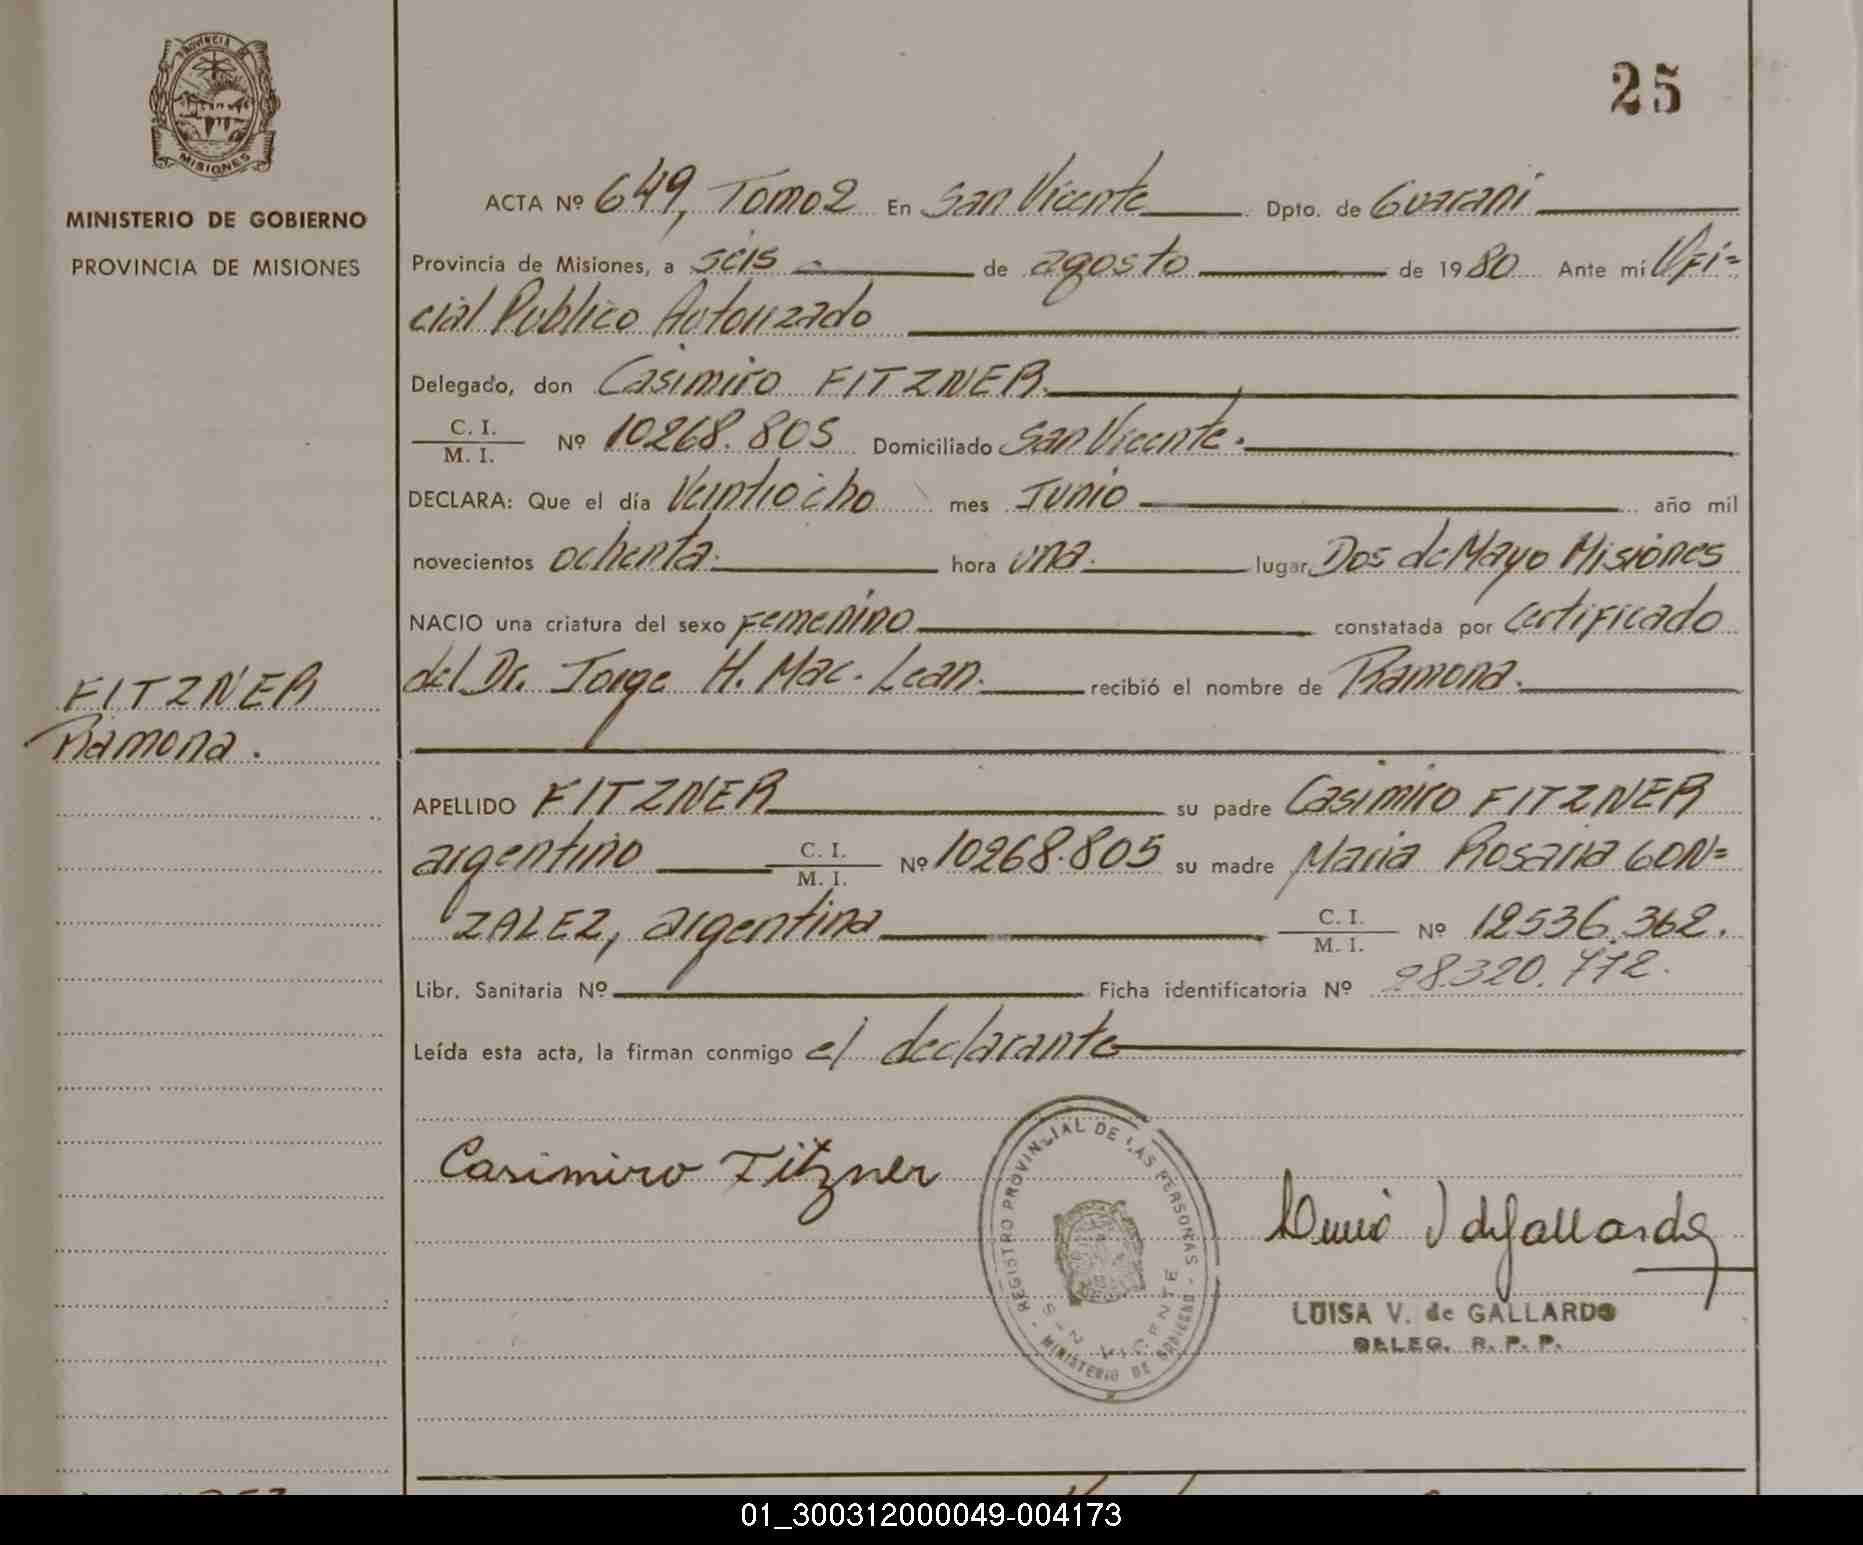 25
PROVINCIA DE
MISIONES
MINISTERIO DE GOBIERNO
PROVINCIA DE MISIONES
ACTA Nº 649, Tomo 2 En San Vicente Dpto. de Guaraní
Provincia de Misiones, a seis de agosto de 1980 Ante mí Ofi=
cial Publico Autorizado
Delegado, don Casimiro FITZNER
C. I.
M. I. Nº 10268.805 Domiciliado San Vicente.
DECLARA: Que el día Veintiocho mes Junio año mil
novecientos ochenta. hora una. lugar Dos de Mayo Misiones
NACIO una criatura del sexo femenino constatada por certificado
del Dr. Jorge H. Mac. Lean. recibió el nombre de Ramona.
FITZNER
Ramona.
APELLIDO FITZNER su padre Casimiro FITZNER
argentino C. I.
M. I. Nº 10268.805 su madre Maria Rosaria GON=
ZALEZ, argentina C. I.
M. I. Nº 12536.362.
Libr. Sanitaria Nº Ficha identificatoria Nº 28.320.772.
Leída esta acta, la firman conmigo el declarante
Casimiro Fitzner
REGISTRO PROVINCIAL DE LAS PERSONAS - MINISTERIO DE GOBIERNO -
SAN VICENTE
de Gallardo
LUISA V. de GALLARDO
DELEG. R. P. P.
01_300312000049-004173